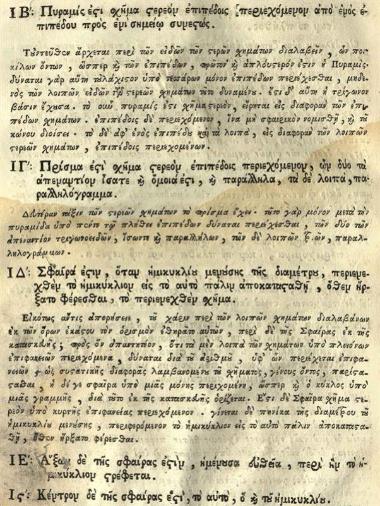 ΙΒ΄: Πυραμίς ἐστι σχῆμα στερεὸν ἐπιπέδοις περιεχόμενον ἀπὸ ἑνὸς ἐ-
πιπέδου πρὸς ἑνὶ σημείῳ συνεστώς.
Ἐντεῦθεν ἄρχεται περὶ τῶν εἰδῶν τῶν στερεῶν σχημάτων διαλαβεῖν, ὧν ποι-
κίλων ὄντων, ὥσπερ καὶ τῶν ἐπιπέδων, πρῶτον καὶ ἁπλούστερον ἐστὶν ἡ Πυραμίς·
δύναται γὰρ αὕτη τοὐλάχιστον ὑπὸ τεσσάρων μόνον ἐπιπέδων περιέχεσθαι, μηδε-
νὸς τῶν λοιπῶν εἰδῶν τῶν στερεῶν σχημάτων τοῦτο δυναμένου. ἔστι δ' αὕτη ἡ τρίγωνον
βάσιν ἔχουσα. τὸ οὖν, πυραμίς ἐστι σχῆμα στερεὸν, εἴρηται εἰς διαφορὰν τῶν ἐπι-
πέδων σχημάτων. ἐπιπέδοις δὲ περιεχόμενον, ἵνα μὴ σφαιρικὸν νομισθῇ, καὶ τοῦ
κώνου διοίσει. τὸ δὲ ἀφ' ἑνὸς ἐπιπέδου καὶ τὰ λοιπὰ, εἰς διαφορὰν τῶν λοιπῶν
στερεῶν σχημάτων, ἐπιπέδοις περιεχομένων.
ΙΓ΄: Πρίσμα ἐστὶ σχῆμα στερεὸν ἐπιπέδοις περιεχόμενον, ὧν δύο τὰ
ἀπεναντίον ἴσα τε καὶ ὅμοιά ἐστι, καὶ παράλληλα, τὰ δὲ λοιπὰ, παρα-
λληλόγραμμα.
Δευτέραν τάξιν τῶν στερεῶν σχημάτων τὸ πρίσμα ἔχει. τοῦτο γὰρ μόνον μετὰ τὴν
πυραμίδα ὑπὸ πέντε τῷ πλήθει ἐπιπέδων δύναται περιέχεσθαι, τῶν δύο τῶν
ἀπεναντίον τριγωνοειδῶν, ἴσων τε καὶ παραλλήλων, τῶν δὲ λοιπῶν παραλ-
ληλογράμμων.
ΙΔ΄: Σφαῖρά ἐστιν, ὅταν ἡμικυκλίου μενούσης τῆς διαμέτρου, περιενε-
χθὲν τὸ ἡμικύκλιον εἰς τὸ αὐτὸ πάλιν ἀποκατασταθῇ, ὅθεν ἤρ-
ξατο φέρεσθαι, τὸ περιενεχθὲν σχῆμα.
Εἰκότως ἄν τις ἀπορήσειε, τοῦ χάριν περὶ τῶν λοιπῶν σχημάτων διαλαμβάνων
ἐκ τῶν ὅρων ἑκάστου τὸν ὁρισμὸν ἐθηρᾶτο αὐτῶν, περὶ δὲ τῆς Σφαίρας ἐκ τῆς
κατασκευῆς; πρὸς ὃν ἀπαντητέον, ὅτι τὰ μὲν λοιπὰ τῶν σχημάτων ὑπὸ πλειόνων
ἐπιφανειῶν περιεχόμενα, δύναται διὰ τοῦ ἀριθμοῦ ὑφ' ὧν περιέχεται ἐπιφα-
νειῶν ὡς συστατικῆς διαφορᾶς λαμβανομένου τοῦ σχήματος, γένους ὄντος, παρίστα-
σθαι, ἡ δέ γε σφαῖρα ὑπὸ μιᾶς μόνης περιεχομένη, ὥσπερ καὶ ὁ κύκλος ὑπὸ
μιᾶς γραμμῆς, διὰ τοῦτο ἐκ τῆς κατασκευῆς ὁρίζεται. Ἔστι δὲ Σφαῖρα σχῆμα στε-
ρεὸν ὑπὸ κυρτῆς ἐπιφανείας περιεχόμενον. γίνεται δὲ πηνίκα τῆς διαμέτρου τοῦ
ἡμικυκλίου μενούσης, περιφερόμενον τὸ ἡμικύκλιον εἰς τὸ αὐτὸ πάλιν ἀποκατα-
σταθῇ, ὅθεν ἤρξατο φέρεσθαι.
ΙΕ΄: Ἄξων δὲ τῆς σφαίρας ἐστὶν, ἡ μένουσα εὐθεῖα, περὶ ἣν τὸ ἡ-
μικύκλιον στρέφεται.
Ις΄: Κέντρον δὲ τῆς σφαίρας ἐστὶ, τὸ αὐτὸ, ὃ καὶ τοῦ ἡμικυκλίου.